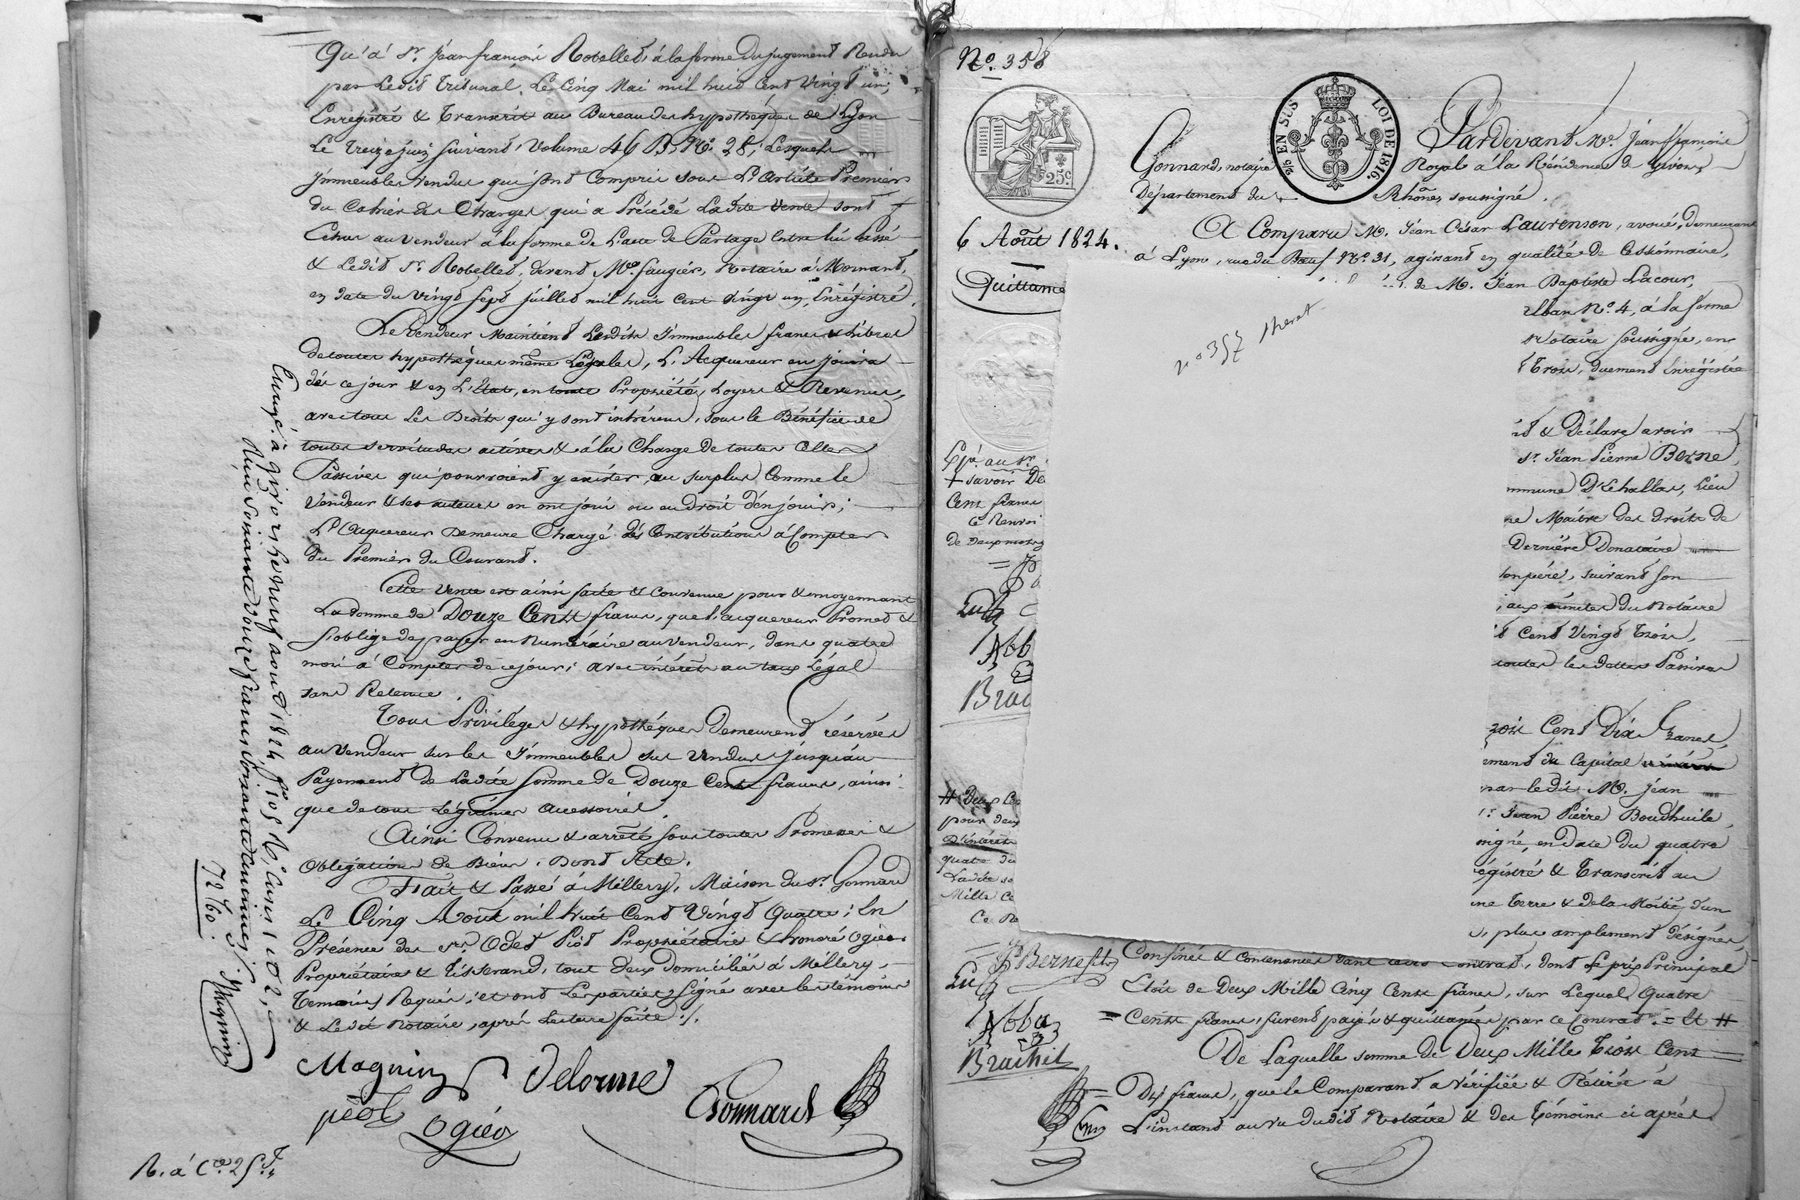 Qu'à Sr. Jean françois Robelled, à la forme du jugement Rendu
par Ledit Tribunal, Le Cinq Mai mil huit Cent Vingt un,
Enrégistré & Transcrit au Bureau des hypothéques de Lyon
Le Treize juin suivant, Volume 46 B. No. 28, Lesquels
Jmmeubles vendus qui sont Compris sous L'Article Premier
du Cahier des Charges qui a Précédé Ladite Vente sont
Echus au vendeur à la forme de L'acte de Partage Entre lui passé
& Ledit Sr. Robelled, devant Me. faugier, Notaire à Mornant,
en date du vingt Sept juillet mil huit Cent vingt un, Enrégistré.
Le vendeur Maintient Lesdits Jmmeubles francs & Libres
de toutes hypothéques même Légales, L'Acquereur en jouira
dès ce jour & en L'Etat, en toute Propriété, Loyers & Revenus,
avec tous Les Droits qui y sont inhérens, sous le Bénéfice de
toutes servitudes actives & à la Charge de toutes Celles
Passives qui pourroient y exister, au surplus Comme le
vendeur & ses auteurs en ont joui ou eu droit d'en jouir;
L'Acquereur Demeure Chargé des Contributions à Compter
du Premier du Courant.
Cette vente est ainsi faite & convenue pour & moyennant
La Somme de Douze Cents francs, que L'acquereur Promet &
s'oblige de payer en Numéraire au vendeur, dans quatre
mois à Compter de ce jour; avec intérêts au taux Légal
sans Retenue.
Tous Privilèges & hypothéques Demeurent réservés
au Vendeur sur les Jmmeubles sus vendus jusqu'au
Payement de Ladite Somme de Douze Cents francs, ainsi
que de tous Légitimes accessoires.
Ainsi Convenu & arrêté sous toutes Promesses &
Obligations de Biens. Dont Acte.
Fait & Passé à Millery, Maison du Sr. Gonnard
Le Cinq Août mil huit Cent Vingt Quatre; En
Présence des Srs. Odet Piot Propriétaire & honoré Ogier
Propriétaire & Tisserand, tous deux domiciliés à Millery,
Temoins Requis; et ont Les parties Signé avec les témoins
& Ledit Notaire, après Lecture faite ./.
Magnin
Delorme
piot
Ogier
Gonnard
Enregé. à Givors Le neuf août 1824, fo. 105
Reçu Soixante douze francs Soixante centimes
72,60
No. 358
25c
EN SUS
LOI DE 1816.
Pardevant Me. Jean françois
Gonnard, notaire Royal à la Résidence de Givors,
Département du Rhône, soussigné.
A Comparu M. Jean César Laurenson, avoué, demeurant
6 Août 1824.
à Lyon, rue du Bœuf No. 31, agissant en qualité de Cessionnaire,
Quittance
de M. Jean Baptiste Lacour,
No. 4, à la forme
Notaire soussigné, en
Trois, duement Enrégistré
& Déclare avoir
Sr. Jean Pierre Berne,
D'Echallas, Lieu
Maitre des droits de
Dernière Donataire
père, suivant son
aux minutes du Notaire
Cent Vingt trois,
toutes les dettes Passives
Cent Dix francs,
Capital
par ledit M. Jean
Jean Pierre Boudhuile,
en Date du quatre
& Transcrit au
Terre & de la Moitié d'un
plus amplement désignés,
+ savoir De
Cent francs
Ce Renvoi
de deux mots
# Deux
pour deux
D'intérêts
quatre du
Ladite
Mille
Ce
Berne
Confinés & contenances dans ledit Contrat, dont Le prix Principal
Etoit de Deux Mille Cinq Cents francs, sur Lequel Quatre
= Cents francs, furent payés & quittancés par ce Contrat. = Et #
Brachit
De Laquelle somme de Deux Mille Trois Cent
= Dix francs, que le Comparant a Vérifiée & Retirée à
L'instant au vu dudit Notaire & des Témoins ci après